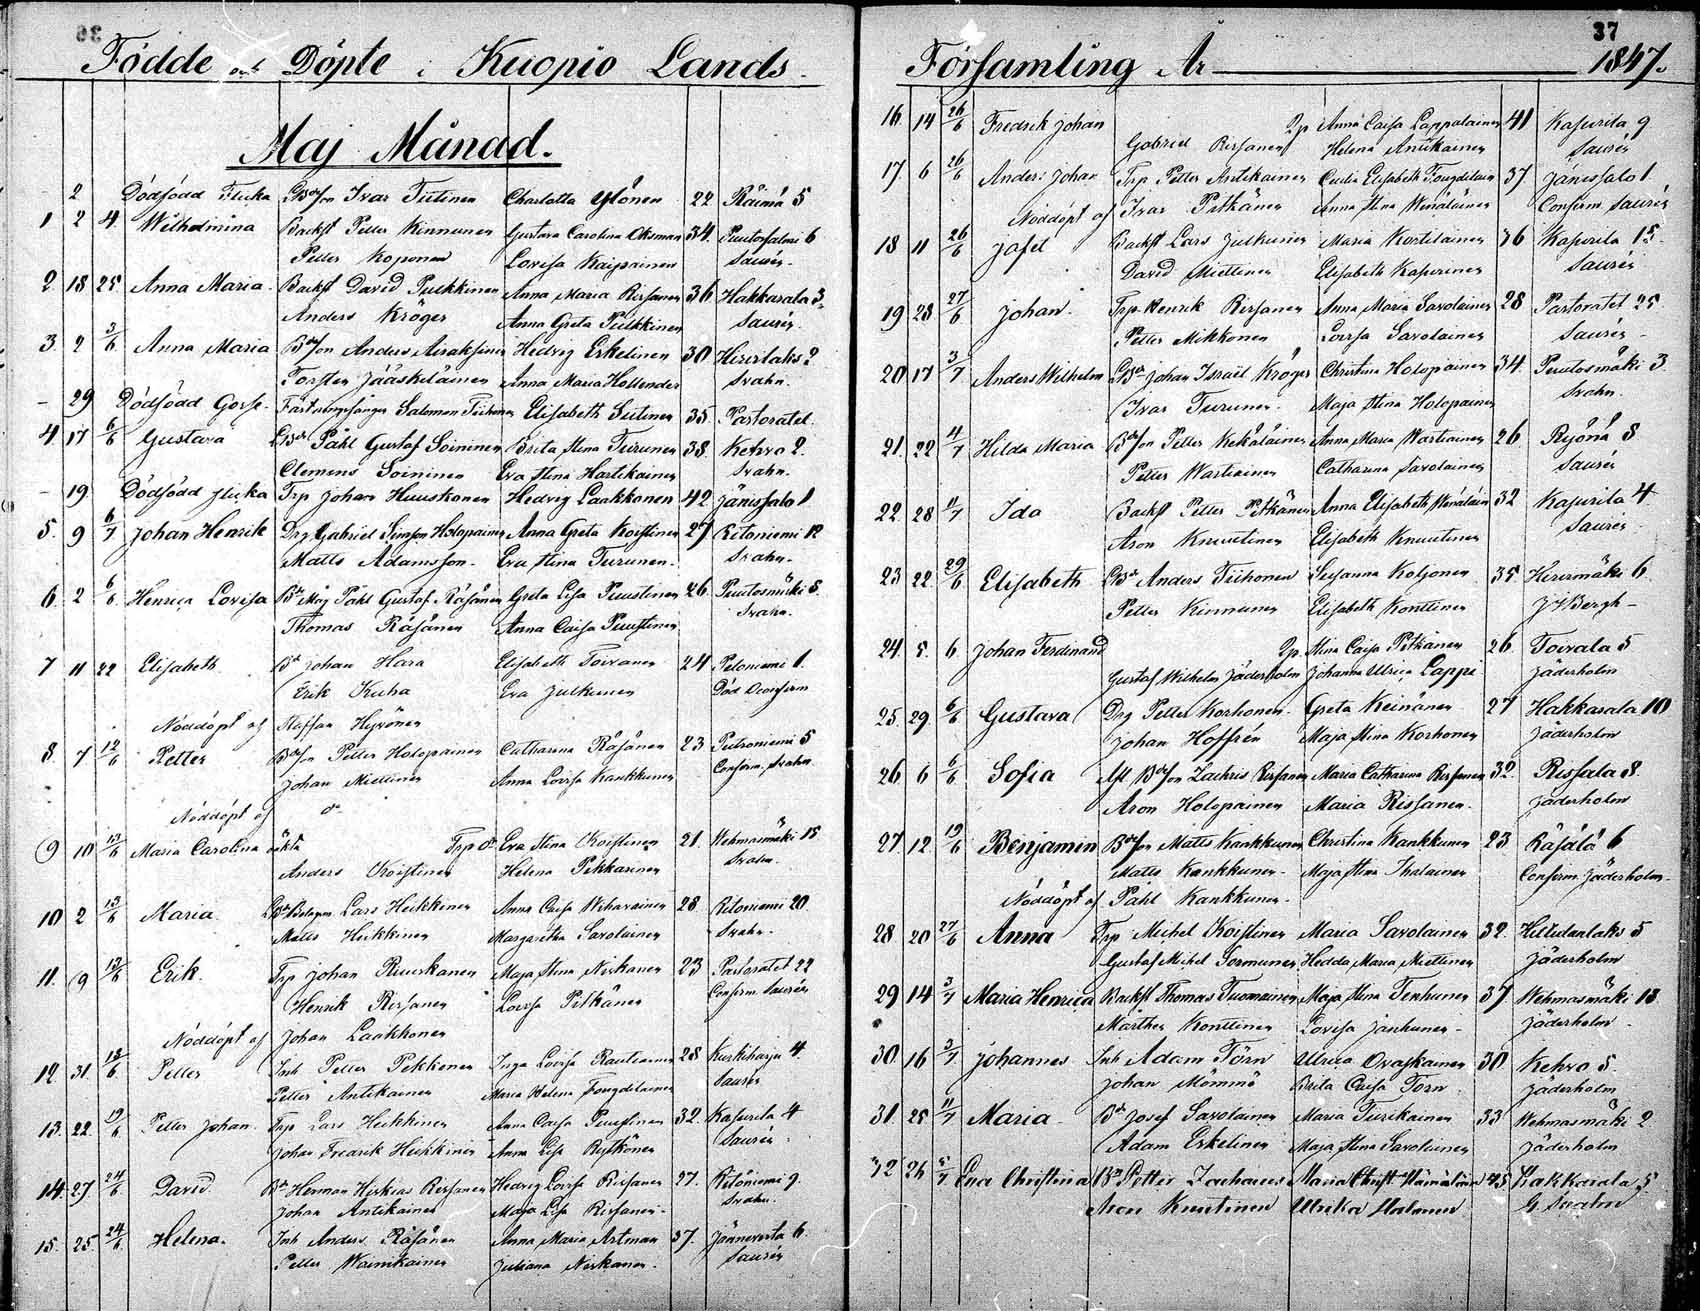 36
Födde och Döpte i Kuopio Lands
Maj Månad.
2 Dödfödd Flicka Bdeson Ivar Tiitinen Charlotta Ylönen 22 Räimä 5
1 2 4. Wilhelmina Backst Petter Kinnunen Gustava Carolina Oksman 34. Puutosalmi 6
Petter Koponen Lovisa Kaipainen Saurén.
2. 18 25. Anna Maria. Backst David Pulkkinen Anna Maria Rissanen 36 Hakkarala 3.
Anders Kröger Anna Greta Pulkkinen Saurén.
3. 2 3/6 Anna Maria Bdeson Anders Airaksinen Hedvig Eskelinen 30 Hirvilaks 2
Torsten Jääskeläinen Anna Maria Hollender Svahn.
- 29 Dödfödd Gosse. Salomon Tiihonen Elisabeth Sutinen 35 Pastoratet.
4. 17 6/6 Gustava Påhl Gustaf Soininen Brita Stina Turunen 38. Kehvo 2.
Clemens Soininen Eva Stina Hartikainen Svahn.
- 19. Dödfödd flicka Trp Johan Huuskonen Hedvig Laakkonen 42 Jänissalo 1
5. 9 6/7 Johan Henrik Drg Gabriel Simson Holopainen Anna Greta Koistinen 27 Ritoniemi 12
Matts Adamsson. Eva Stina Turunen. Svahn.
6. 2 6/6 Henrica Lovisa Bde Måg Påhl Gustaf Räsänen Greta Lisa Puustinen 26. Puutosmäki 8.
Thomas Räsänen Anna Caisa Puustinen Svahn.
7 11 22 Elisabeth Bde Johan Hara Elisabeth Toivanen 24 Pelonniemi 1.
Erik Kuha Eva Julkunen Död Oconfirm
Nöddöpt af Staffan Hyvönen
8. 7 12/6 Petter Bdeson Petter Holopainen Catharina Räsänen 23 Putroniemi 5
Johan Miettinen Anna Lovisa Kankkunen Confirm. Svahn.
Nöddöpt af do
9 10 13/6 Maria Carolina oäkta Trp dr Eva Stina Koistinen 21. Wehmasmäki 15
Anders Koistinen Helena Pekkarinen Svahn.
10 2 13/6 Maria. Lars Heikkinen Anna Caisa Wihavainen 28 Ritoniemi 20.
Matts Heikkinen Margaretha Savolainen Svahn.
11. 9 13/6 Erik. Trp Johan Ruuskanen Maja Stina Niskanen 23 Pastoratet 22
Henrik Rissanen Lovisa Pitkänen Confirm. Saurén
Nöddöpt af Johan Laakkonen
12. 31. 13/6 Petter Inh Petter Pekkonen Inga Lovisa Rautiainen 28 Kurkiharju 4.
Petter Antikainen Maria Helena Tougdelainen Saurén
13. 22. 19/6 Petter Johan. Trp Lars Heikkinen Anna Caisa Puustinen 32. Kasurila 4
Johan Fredrik Heikkinen Anna Lisa Ryötkönen Saurén.
14. 27 24/6 David. Bde Herman Hiskias Rissanen Hedvig Lovisa Rissanen 27. Ritoniemi 9.
Johan Antikainen Maja Lisa Rissanen. Svahn.
15. 25. 24/6 Helena. Inh Anders Räsänen Anna Maria Artman 37. Jännevirta 6.
Petter Wainikainen Juliana Niskanen. Saurén
37
Församling År 1847.
16. 14 26/6 Fredrik Johan Qp Anna Caisa Lappalainen 41 Kasurila 9
Gabriel Rissanen Helena Antikainen Saurén
17. 6 26/6 Anders Johan Trp Petter Antikainen Cecilia Elisabeth Tougdelain 37 Jänissalo 1.
Nöddöpt af Ivar Pitkänen Anna Stina Wenäläinen Confirm Saurén
18 11 26/6 Josef Backst Lars Julkunen Maria Kortelainen 36 Kasurila 15.
David Miettinen Elisabeth Kasurinen Saurén
19 28 27/6 Johan. Trp Henrik Rissanen Anna Maria Savolainen 28 Pastoratet 25.
Petter Mikkonen Lovisa Savolainen Saurén.
20 17 3/7 Anders Wilhelm Bde Johan Israel Kröger Christina Holopainen 34. Puutosmäki 3.
Ivar Turunen. Maja Stina Holopainen Svahn.
21. 22 4/7 Hilda Maria Bdeson Petter Kekäläinen Anna Maria Wartiainen 26. Ryönä 8
Petter Wartiainen Catharina Savolainen Saurén
22. 28 11/7 Ida Backst Petter Pitkänen Anna Elisabeth Wenäläin 32 Kasurila 4
Aron Knuutinen Elisabeth Knuutinen Saurén
23 22 29/6 Elisabeth Anders Tiihonen Susanna Koljonen 35 Hirvimäki 6.
Petter Kinnunen Elisabeth Konttinen J J Bergh.
24. 5. 6 Johan Ferdinand Qp Stina Caisa Pitkänen 26. Toivala 5
Gustaf Wilhelm Jäderholm Johanna Ulrica Lappi Jäderholm
25. 29. 6/6 Gustava Drg Petter Korhonen. Greta Keinänen 27 Hakkarala 10
Johan Hoffrén Maja Stina Korhonen Jäderholm
26. 6 6/6 Sofia Afl Bdeson Zachris Rissanen Maria Catharina Rissanen 32. Rissala 8.
Aron Holopainen Maria Rissanen. Jäderholm
27 12. 19/6 Benjamin Bdeson Matts Kankkunen Christina Kankkunen 23 Räsälä 6
Matts Kankkunen. Maja Stina Ihalainen Confirm. Jäderholm.
Nöddöpt af Påhl Kankkunen.
28. 20 27/6 Anna Trp Michel Koistinen Maria Savolainen 32. Hiltulanlaks 5
Gustaf Michel Sormunen Hedda Maria Miettinen Jäderholm
29 14 3/7 Maria Henrica Backst Thomas Tuomainen Maja Stina Tenhunen 37 Wehmasmäki 13.
Märthen Konttinen Lovisa Janhunen. Jäderholm.
30. 16 3/7 Johannes Inh Adam Törn Ulrica Ovaskainen 30 Kehvo 5.
Johan Mömmö Brita Caisa Törn. Jäderholm
31. 25 11/7 Maria. Bde Josef Savolainen Maria Turikainen 33 Wehmasmäki 2
Adam Eskelinen Maja Stina Savolainen Jäderholm
32 26 5/7 Eva Christina Petter Zacharias Maria Christ. Hämäläin 45 Hakkarala 5
Aron Knutinen Ulrika Halonen G. Svahn